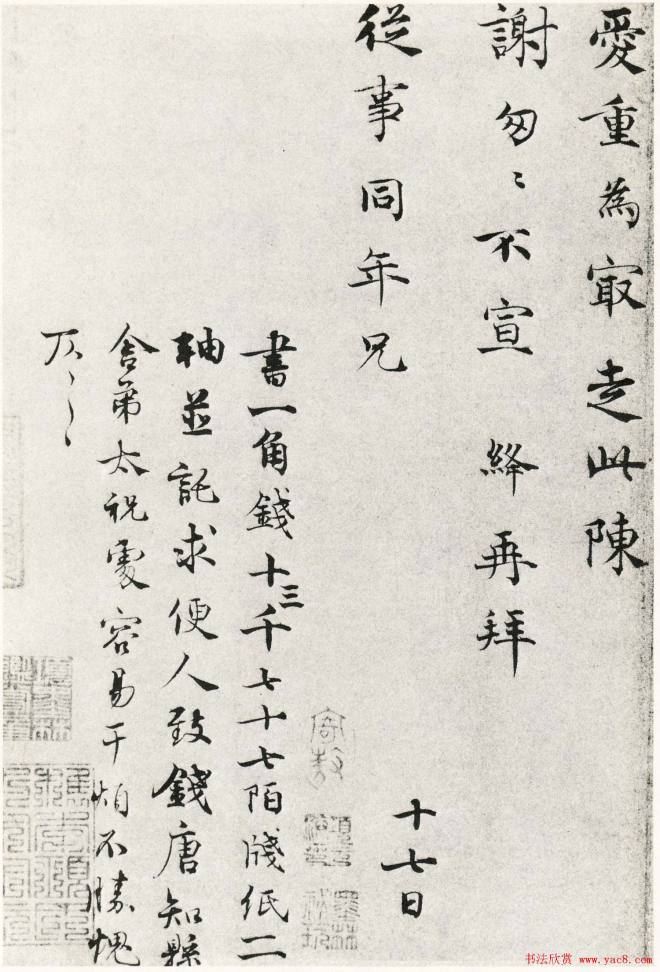 愛重為寂走此陳
謝匆〻不宣 絳再拜
從事同年兄
十七日
書一角錢十三千七十七陌牋紙二
軸並託求便人致錢唐知縣
舍弟太祝處容易干煩不勝愧
仄〻〻
书法欣赏 www.yac8.com